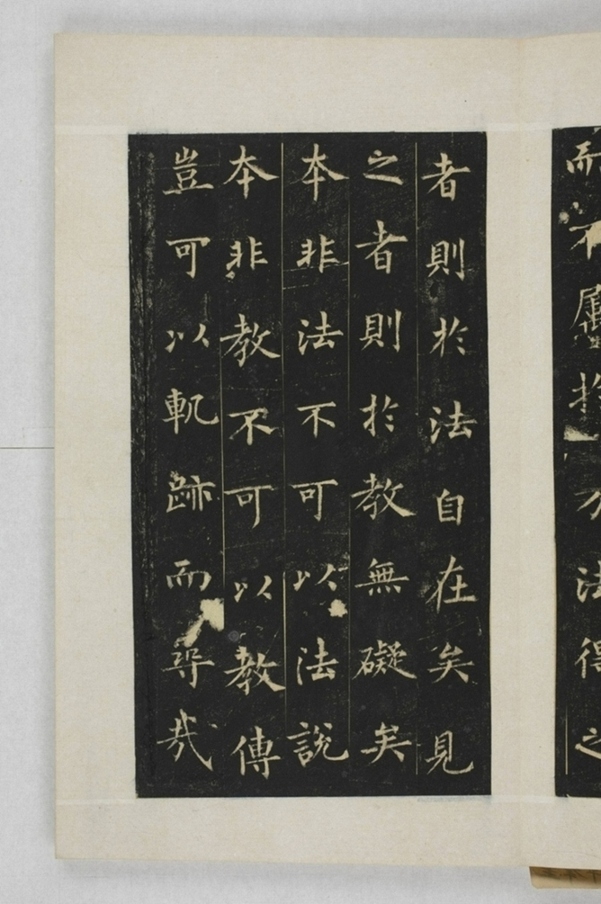 而不屬於
法得之
者則於法自在矣見
之者則於教無礙矣
本非法不可以法說
本非教不可以教傳
豈可以軌跡而尋哉